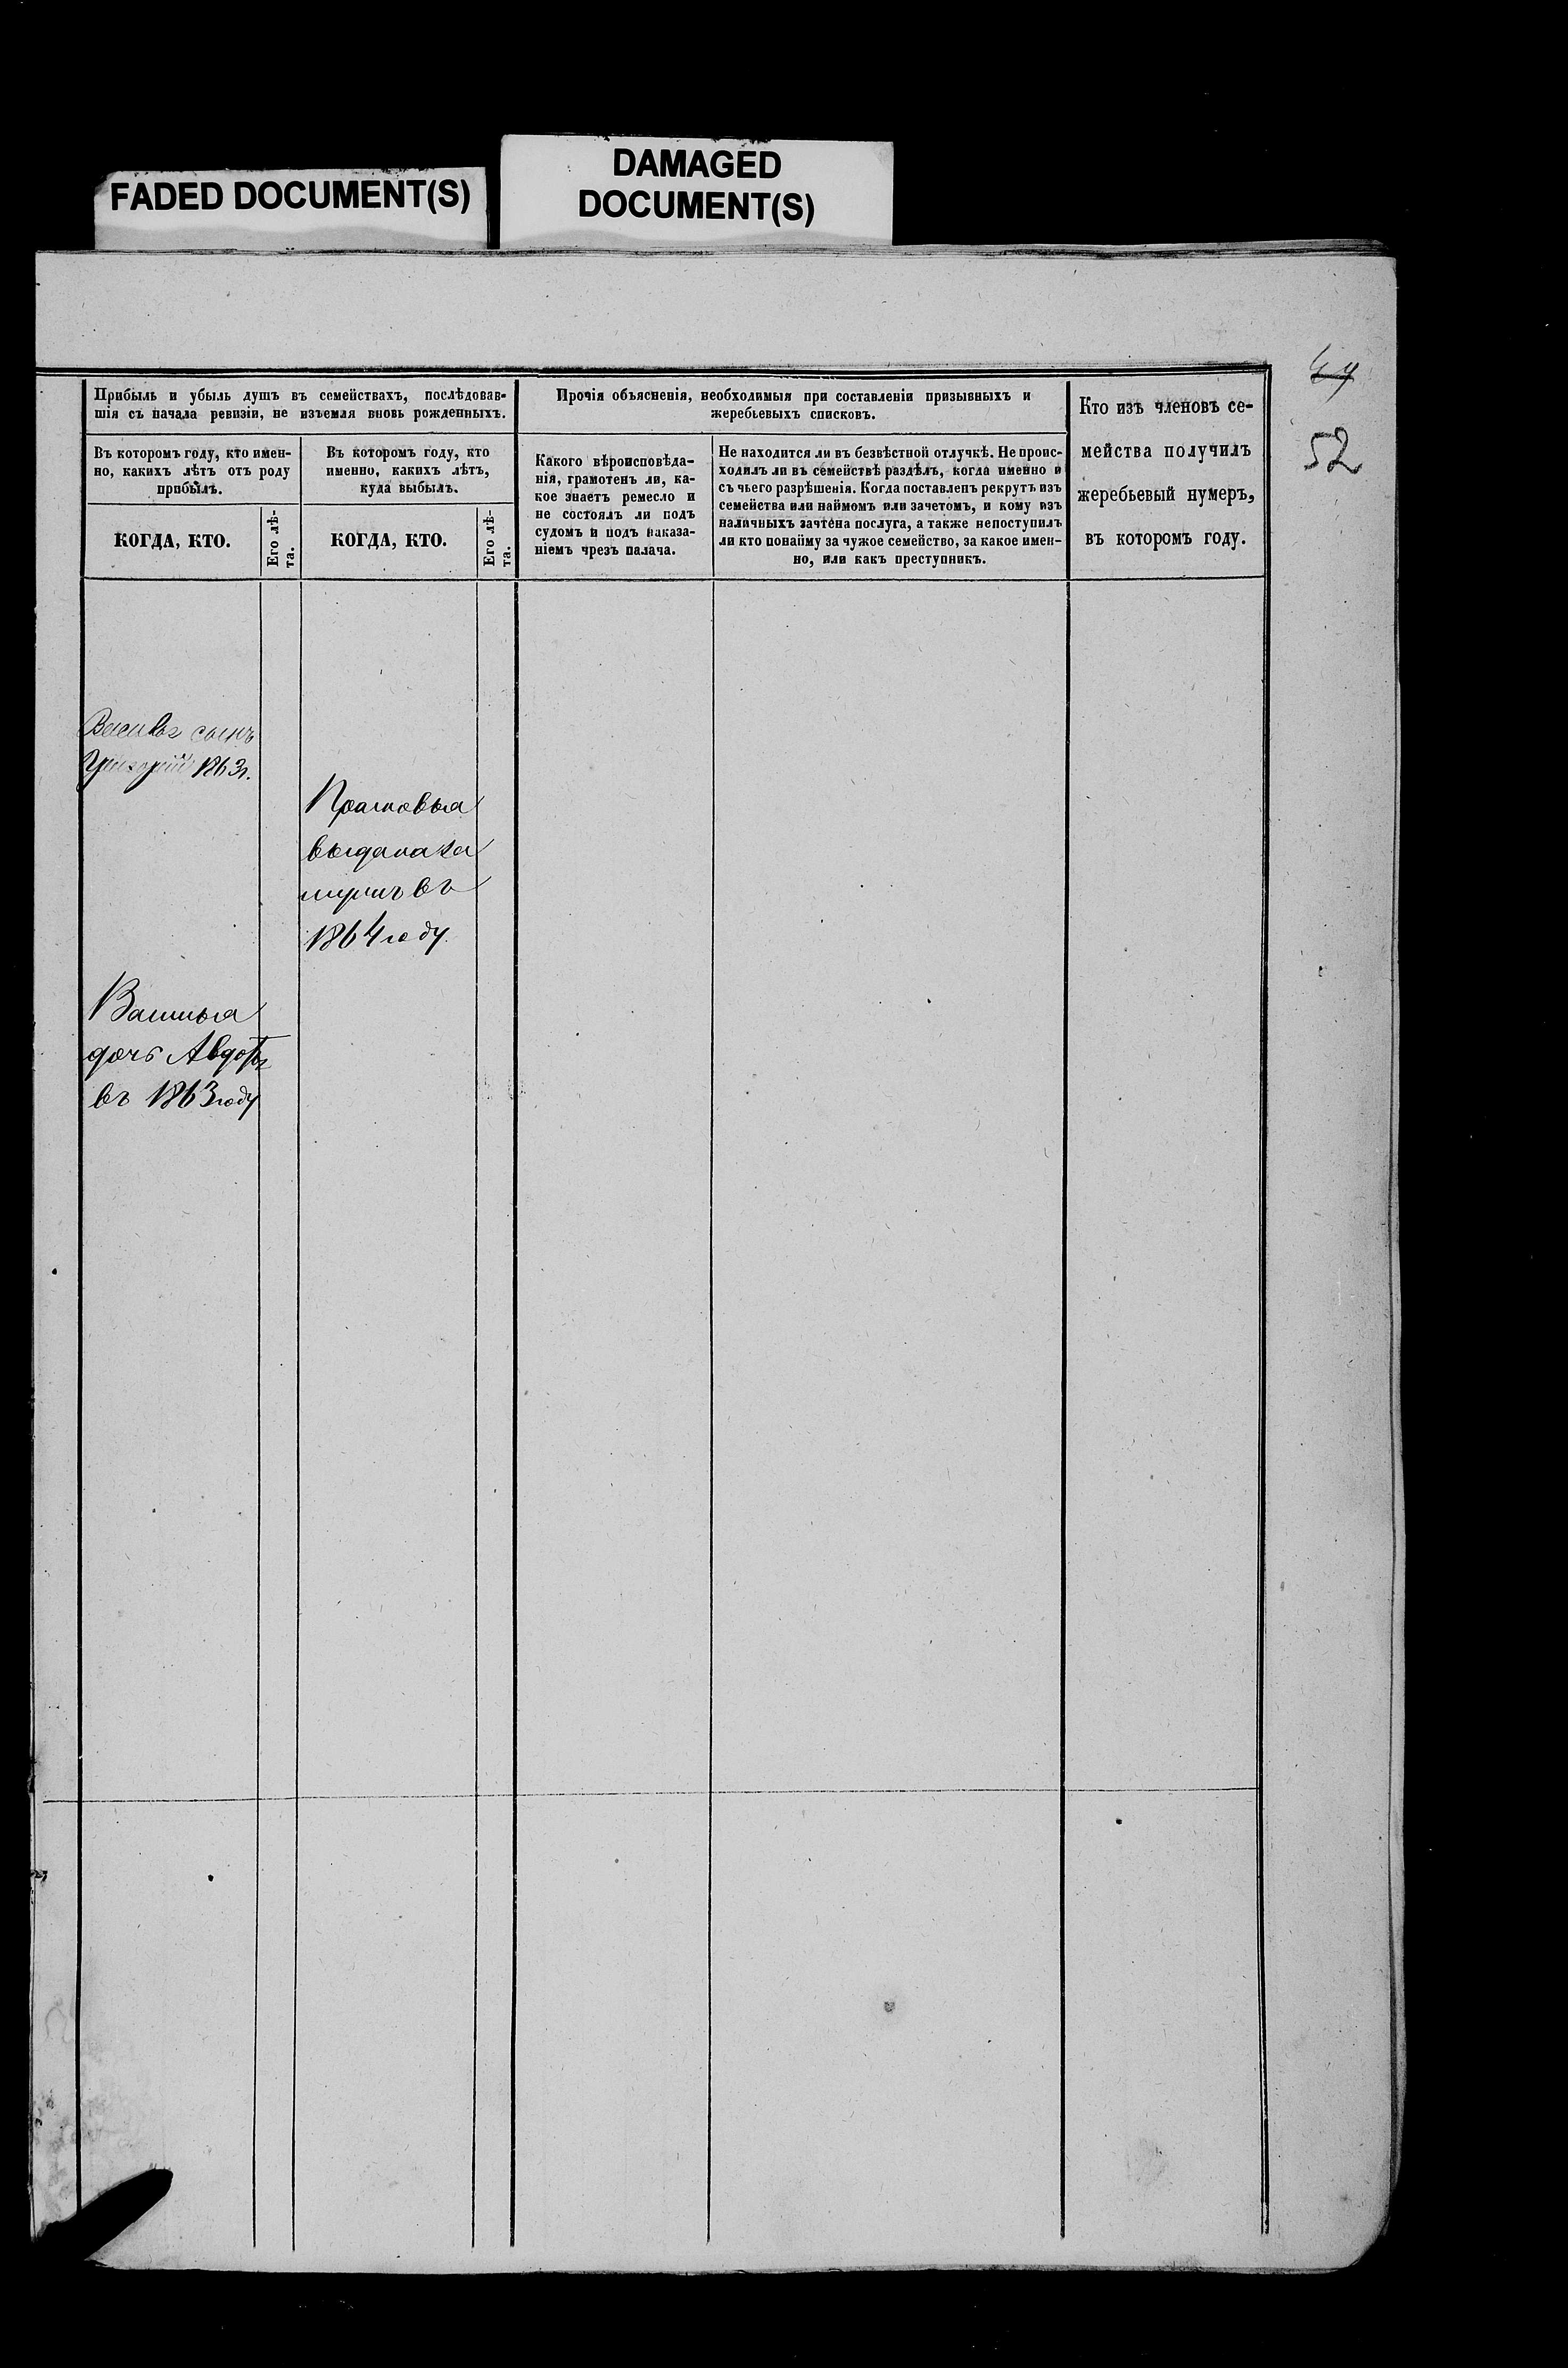 FADED DOCUMENT(S)
DAMAGED
DOCUMENT(S)
52
Прибыль и убыль душъ въ семействахъ, послѣдовав-
шія съ начала ревизіи, не изъемля вновь рожденныхъ.
Въ которомъ году, кто имен-
но, какихъ лѣтъ отъ роду
прибылъ.
КОГДА, КТО.
Его лѣ-
та.
Въ которомъ году, кто
именно, какихъ лѣтъ,
куда выбылъ.
КОГДА, КТО.
Его лѣ-
та.
Прочія объясненія, необходимыя при составленіи призывныхъ и
жеребьевыхъ списковъ.
Какого вѣроисповѣда-
нія, грамотенъ ли, ка-
кое знаетъ ремесло и
не состоялъ ли подъ
судомъ и подъ наказа-
ніемъ чрезъ палача.
Не находится ли въ безвѣстной отлучкѣ. Не проис-
ходилъ ли въ семействѣ раздѣлъ, когда именно и
съ чьего разрѣшенія. Когда поставленъ рекрутъ изъ
семейства или наймомъ или зачетомъ, и кому изъ
наличныхъ зачтена послуга, а также непоступилъ
ли кто понайму за чужое семейство, за какое имен-
но, или какъ преступникъ.
Кто изъ членовъ се-
мейства получилъ
жеребьевый нумеръ,
въ которомъ году.
сынъ
Григорій 1863г.
выдана за
мужъ въ
1864 году.
дочь Авдотья
въ 1863 году